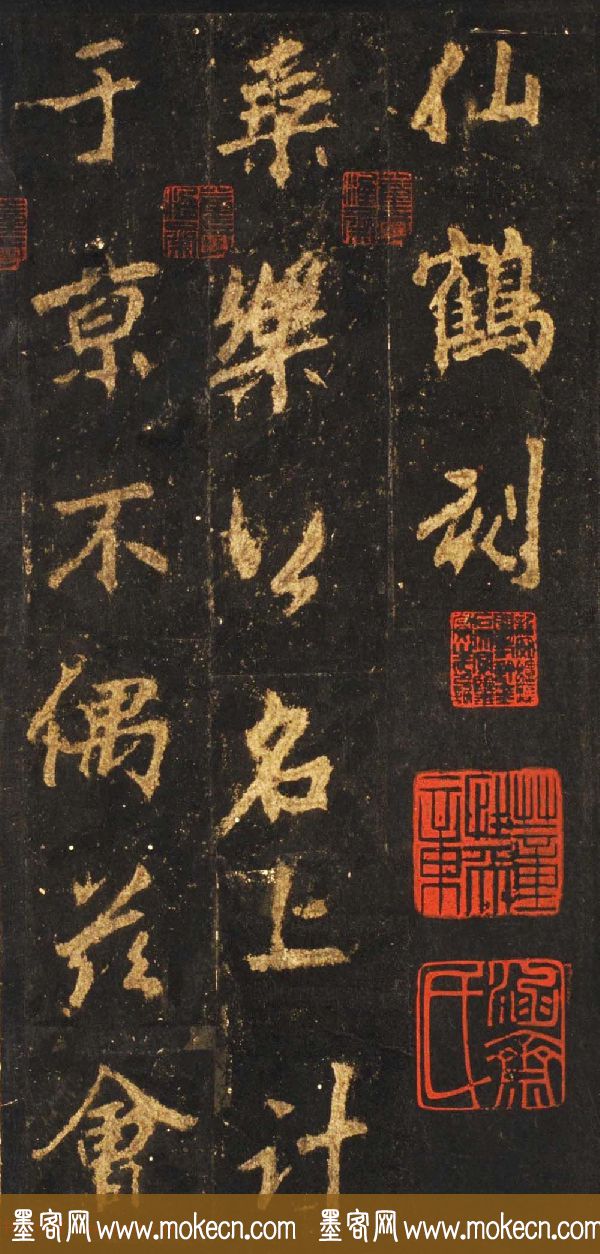 仙鶴刻
乘樂公名上計
于京不偶兹會
墨客网 www.mokecn.com 墨客网 www.mokecn.com